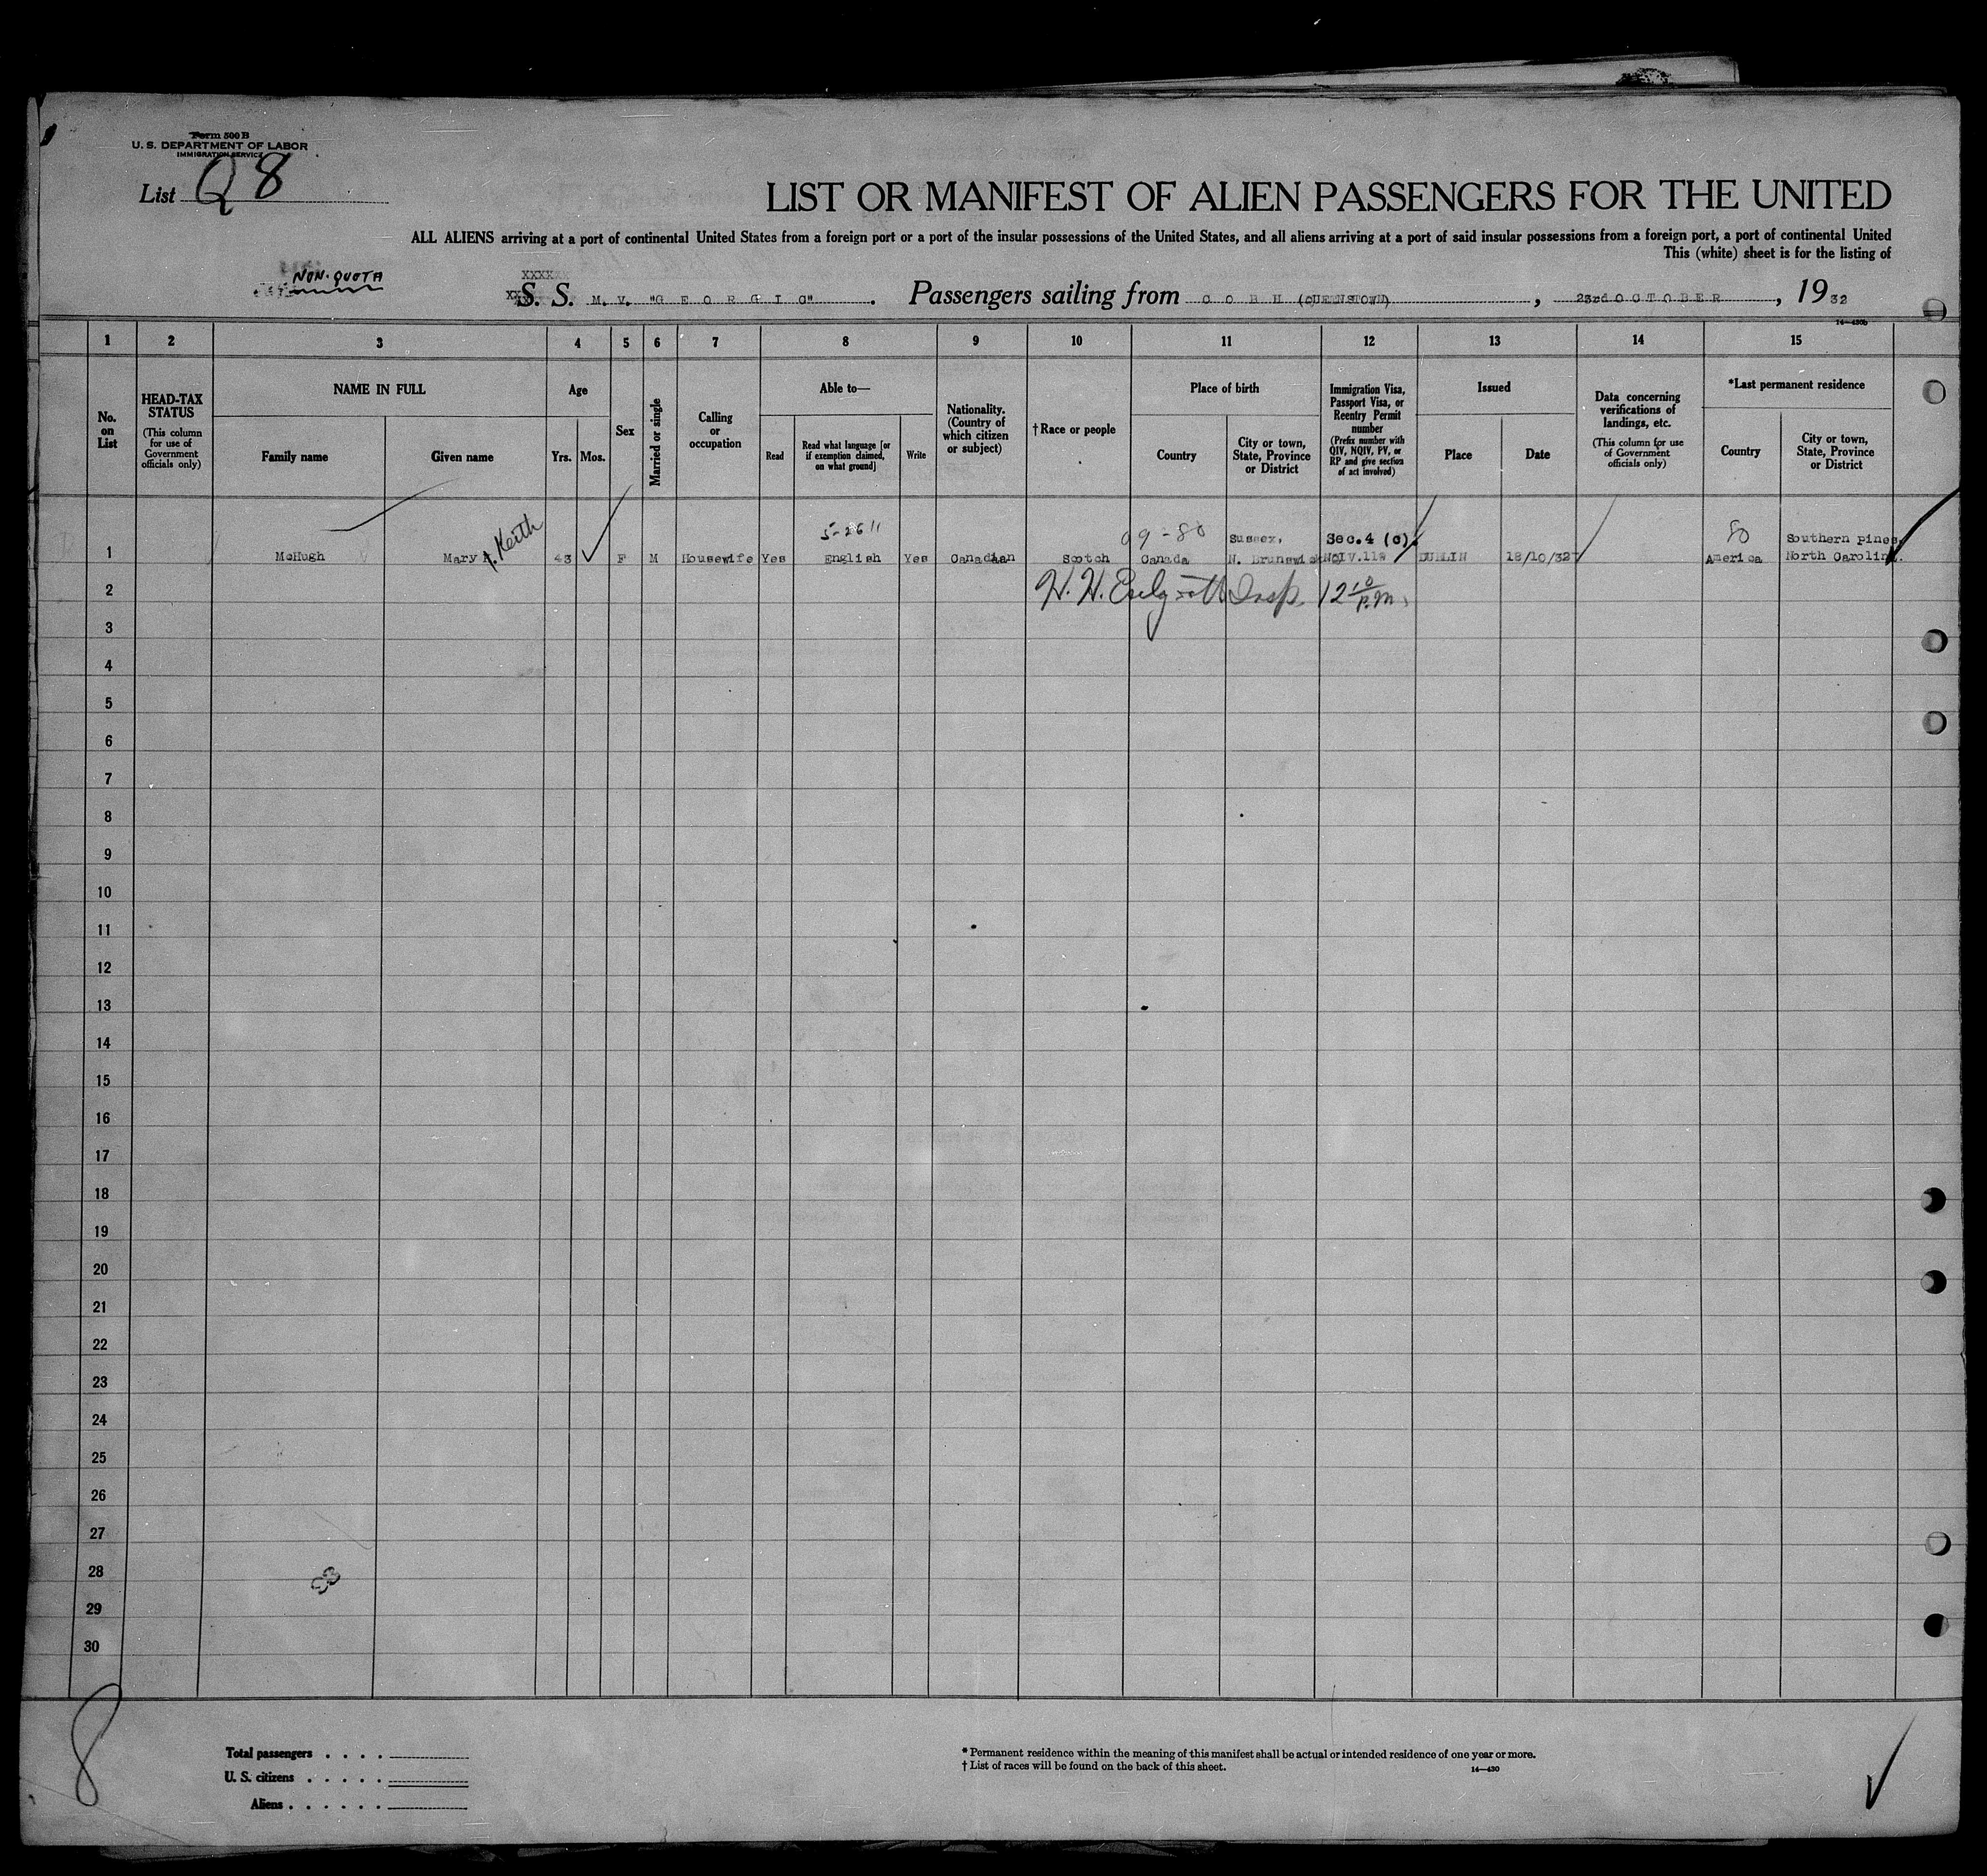 Form 500 B
U. S. DEPARTMENT OF LABOR
IMMIGRATION SERVICE
List Q8
LIST OR MANIFEST OF ALIEN PASSENGERS FOR THE UNITED
ALL ALIENS arriving at a port of continental United States from a foreign port or a port of the insular possessions of the United States, and all aliens arriving at a port of said insular possessions from a foreign port, a port of continental United
This (white) sheet is for the listing of
NON-QUOTA
XXXX
S. S. M. V. "G E O R G I C" . Passengers sailing from C O B H (QUEENSTOWN) , 23rd O C T O B E R , 1932
14—430b
1 2 3 4 5 6 7 8 9 10 11 12 13 14 15
No. on List
HEAD-TAX STATUS
(This column for use of Government officials only)
NAME IN FULL
Family name
Given name
Age
Yrs. Mos.
Sex
Married or single
Calling or occupation
Able to—
Read
Read what language [or if exemption claimed, on what ground]
Write
Nationality. (Country of which citizen or subject)
†Race or people
Place of birth
Country
City or town, State, Province or District
Immigration Visa, Passport Visa, or Reentry Permit number
(Prefix number with QIV, NQIV, PV, or RP and give section of act involved)
Issued
Place
Date
Data concerning verifications of landings, etc.
(This column for use of Government officials only)
*Last permanent residence
Country
City or town, State, Province or District
5-26 11 09-80 Sussex, Sec.4 (c). 80 Southern pines,
1 McHugh Mary A. Keith 43 F M Housewife Yes English Yes Canadian Scotch Canada N. Brunswick NQIV.119 DUBLIN 18/10/32 America North Carolina.
2 H. H. Insp. 12 10 P.M.
3
4
5
6
7
8
9
10
11
12
13
14
15
16
17
18
19
20
21
22
23
24
25
26
27
28
29
30
8
Total passengers . . . .
U. S. citizens . . . . .
Aliens . . . . . .
* Permanent residence within the meaning of this manifest shall be actual or intended residence of one year or more.
† List of races will be found on the back of this sheet.
14—430